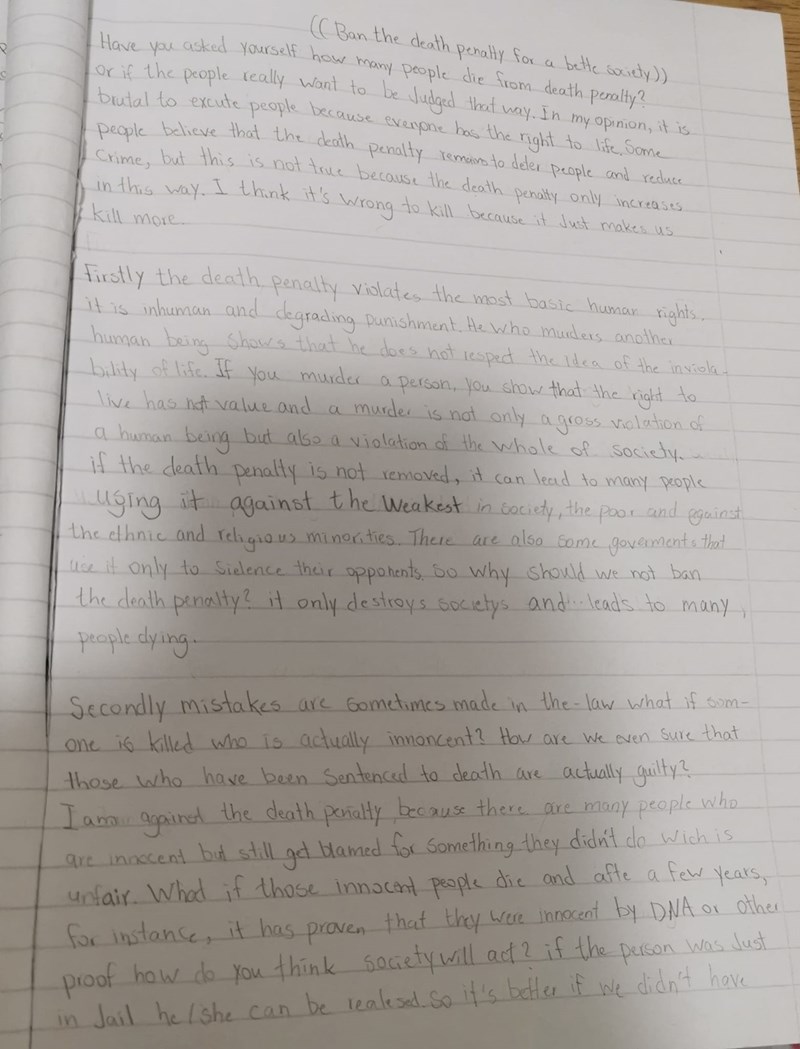 ((Ban the death penalty for a bette society))
Have you asked yourself how many people die from death penalty?
or if the people really want to be Judged that way. In my opinion, it is
brutal to excute people because everyone has the right to life. Some
people believe that the death penalty remains to deter people and reduce
Crime, but this is not true because the death penalty only increases
in this way. I think it's wrong to kill because it Just makes us
kill more.
Firstly the death penalty violates the most basic human rights.
it is inhuman and degrading punishment. He who murders another
human being shows that he does not respect the idea of the inviola-
bility of life. If you murder a person, you show that the right to
live has not value and a murder is not only a gross violation of
a human being but also a violation of the whole of society.
if the death penalty is not removed, it can lead to many people
using it against the weakest in society, the poor and against
the ethnic and religious minorities. There are also some goverments that
use it only to sielence their opponents. So why should we not ban
the death penalty? it only destroys societys and leads to many
people dying.
Secondly mistakes are sometimes made in the law what if som-
one is killed who is actually innoncent? How are we even sure that
those who have been sentenced to death are actually guilty?
I am against the death penalty because there are many people who
are innocent but still get blamed for something they didn't do wich is
unfair. What if those innocent people die and afte a few years,
for instance, it has proven that they were innocent by DNA or other
proof how do you think society will act? if the person was Just
in Jail he/she can be realesed. So it's better if we didn't have